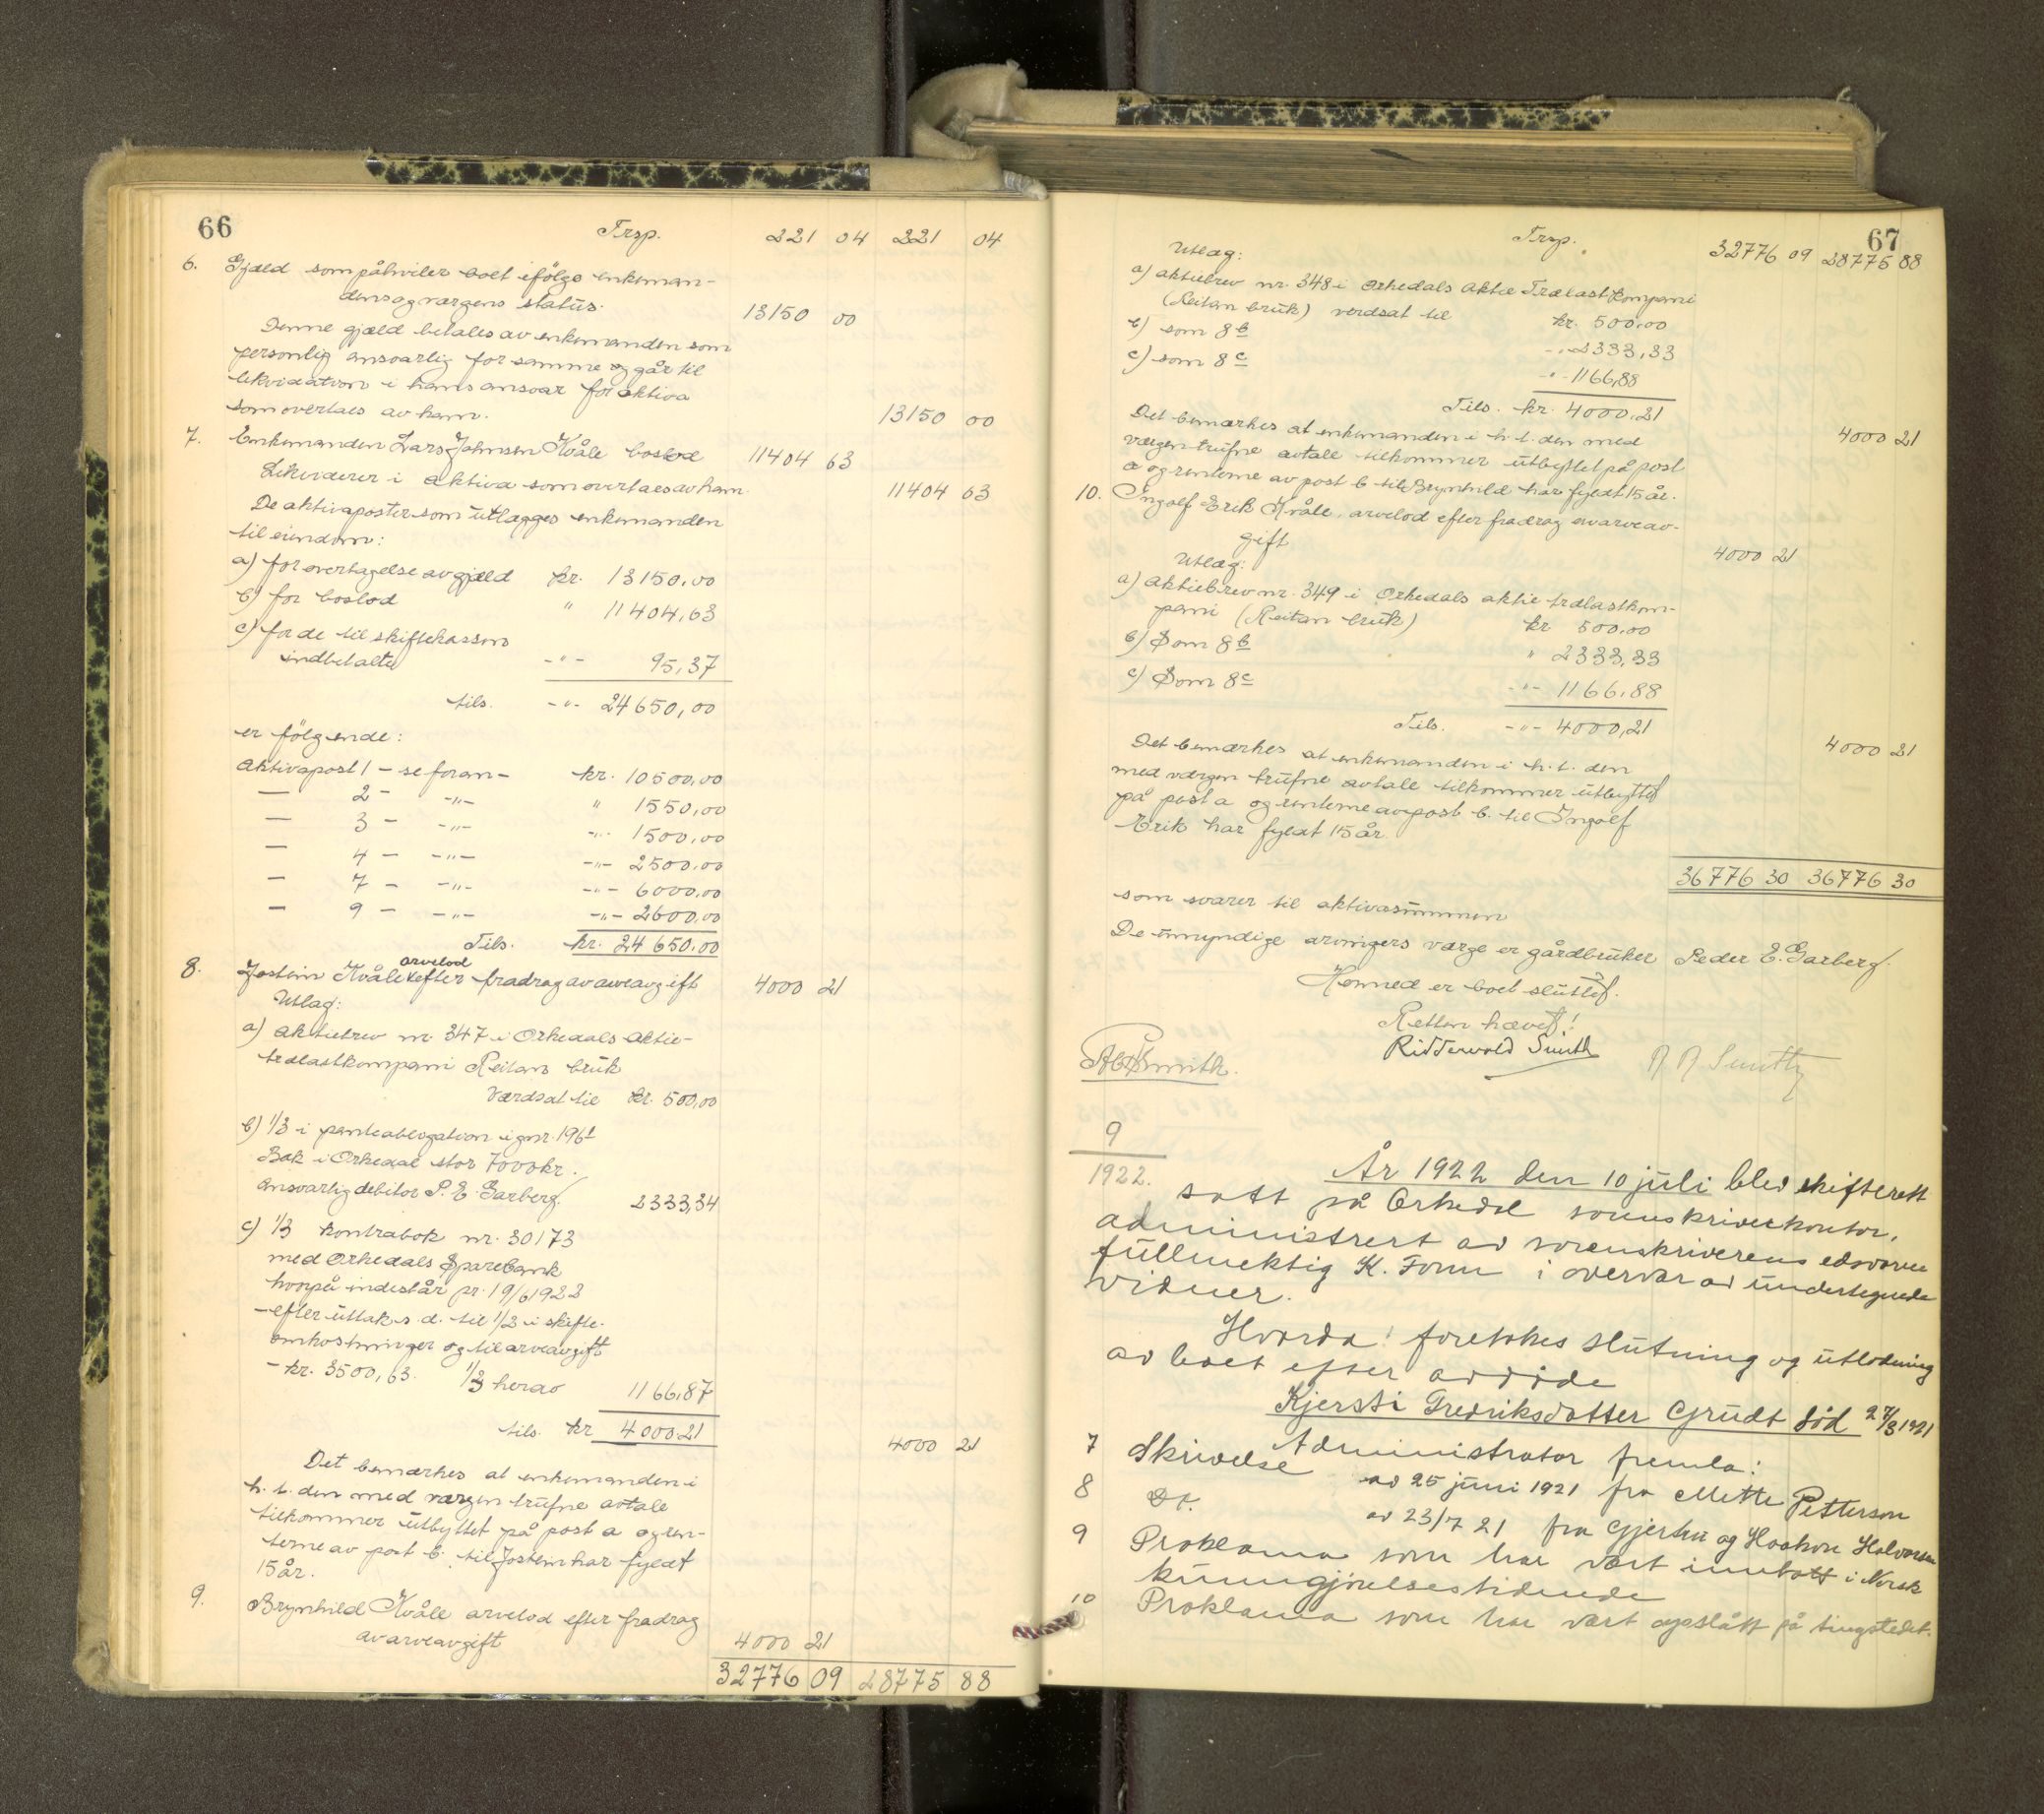 66
Trsp. 221 04 221 04
6. Gjæld som påhviler boet ifölge enkeman-
dens og værgens status. 13150 00
Denne gjæld betales av enkemanden som
personlig ansvarlig for samme og går til
likvidation i hans ansvar for aktiva
som overtaes av ham. 13150 00
7. Enkemanden Lars Johnsen Kvåle boslod 11404 63
Likviderer i aktiva som overtaes av ham. 11404 63
De aktivaposter som utlægges enkemanden
til eiendom:
a) for overtagelse av gjæld kr. 13150,00
b) for boslod " 11404,63
c) for de til skiftekassen
indbetalte -"- 95,37
tils. -"- 24650,00
er følgende:
Aktivapost 1 - se foran - kr. 10500,00
— 2 - -"- " 1550,00
— 3 - -"- -"- 1500,00
— 4 - -"- -"- 2500,00
— 7 - -"- -"- 6000,00
— 9 - -"- -"- 2600,00
Tils. kr. 24650.00
arvelod
8. Jostein Kvåle efter fradrag av arveavgift 4000 21
Utlæg:
a) aktiebrev nr. 347 i Orkedals Aktie-
trælastkompani Reitan bruk
Værdsat til kr. 500,00
b) 1/3 i panteobligation i gnr. 196/1
Bak i Orkedal stor 7000 kr.
Ansvarlig debitor P. E. Garberg 2333,34
c) 1/3 kontrabok nr. 30173
med Orkedals Sparebank
hvorpå indestår pr. 19/6 1922
- efter uttak s. d. til 1/2 i skifte-
omkostninger og til arveavgift
- kr. 3500,63. 1/3 herav 1166,87
tils. kr 4000.21
4000 21
Det bemærkes at enkemanden i
h. t. den med værgen trufne avtale
tilkommer utbyttet på post a og ren-
terne av post b. til Jostein har fyldt
15 år.
9. Brynhild Kvåle arvelod efter fradrag
av arveavgift 4000 21
32776 09 28775 88
67
Trsp. 32776 09 28775 88
Utlæg:
a) aktiebrev nr. 348 i Orkedals Aktie Trælastkompani
(Reitan bruk) verdsat til kr. 500,00
b) som 8 b -"- 2333,33
c) som 8 c -"- 1166,88
Tils. kr. 4000,21
4000 21
Det bemærkes at enkemanden i h. t. den med
værgen trufne avtale tilkommer utbyttet på post
a og renterne av post b til Brynhild har fyldt 15 år.
10. Ingolf Erik Kvåle, arvelod efter fradrag av arveav-
gift 4000 21
Utlæg:
a) Aktiebrev nr. 349 i Orkedals aktie trælastkom-
pani (Reitan bruk) kr 500,00
b) Som 8 b " 2333,33
c) Som 8 c -"- 1166,88
Tils. -"- 4000,21
4000 21
Det bemærkes at enkemanden i h. t. den
med værgen trufne avtale tilkommer utbyttet
på post a og renterne av post b. til Ingolf
Erik har fyldt 15 år.
36776 30 36776 30
som svarer til aktivasummen
De umyndige arvingers værge er gårdbruker Peder E. Garberg.
Hermed er boet sluttet.
Retten hævet!
Ridderwold Smith
Smith. Smith
9
1922.
År 1922 den 10 juli blev skifterett
satt på Orkedal sorenskriverkontor,
administrert av sorenskriverens edsvorne
fullmektig K. Fonn i overvær av undertegnede
vidner.
Hvorda: foretokes slutning og utlodning
av boet efter avdöde
Kjersti Fredriksdatter Grudt död 27/3 1921
Administrator fremla:
7 Skrivelse av 25 juni 1921 fra Mette Petterson
8 do. av 23/7 21 fra Gjertru og Haakon Halvorsen
9 Proklama som har vært inntatt i Norsk
kunngjörelsestidende
10 Proklama som har vært opslått på tingstedet.